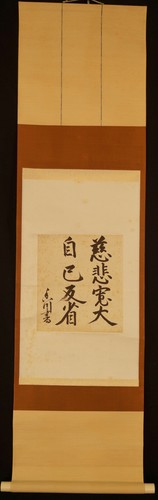 慈悲寛大
自己反省